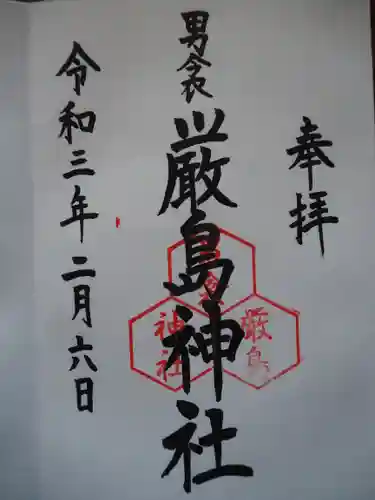 奉拝
男衾
厳島神社
令和三年二月六日
厳島
神社